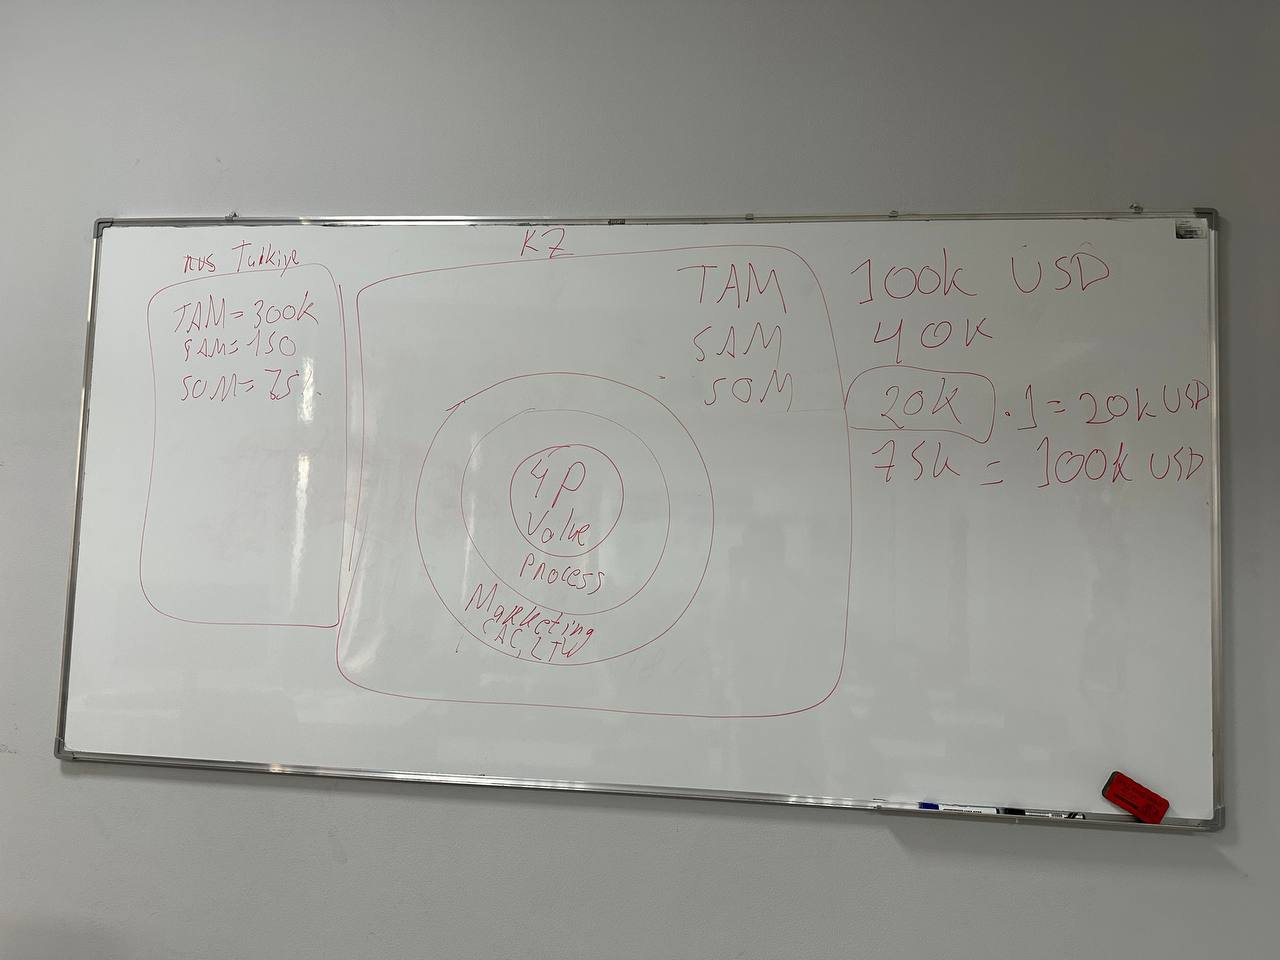 rus Turkiye
TAM = 300k
SAM = 150
SOM = 75
KZ
TAM 100k USD
SAM 40K
SOM 20k · 1 = 20k USD
75k = 100k USD
4P
Value
process
Marketing
CAC, LTV